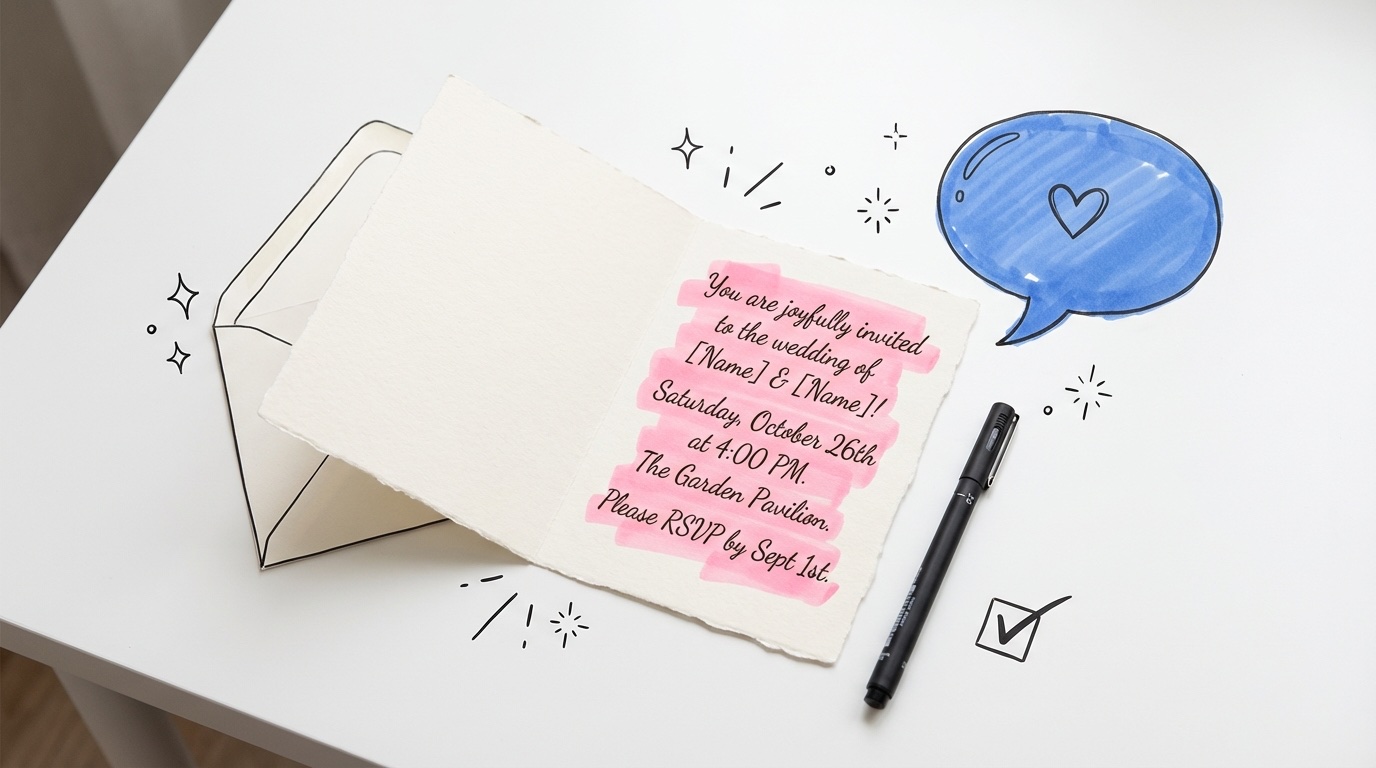 You are joyfully invited
to the wedding of
[Name] & [Name]!
Saturday, October 26th
at 4:00 PM.
The Garden Pavilion.
Please RSVP by Sept 1st.